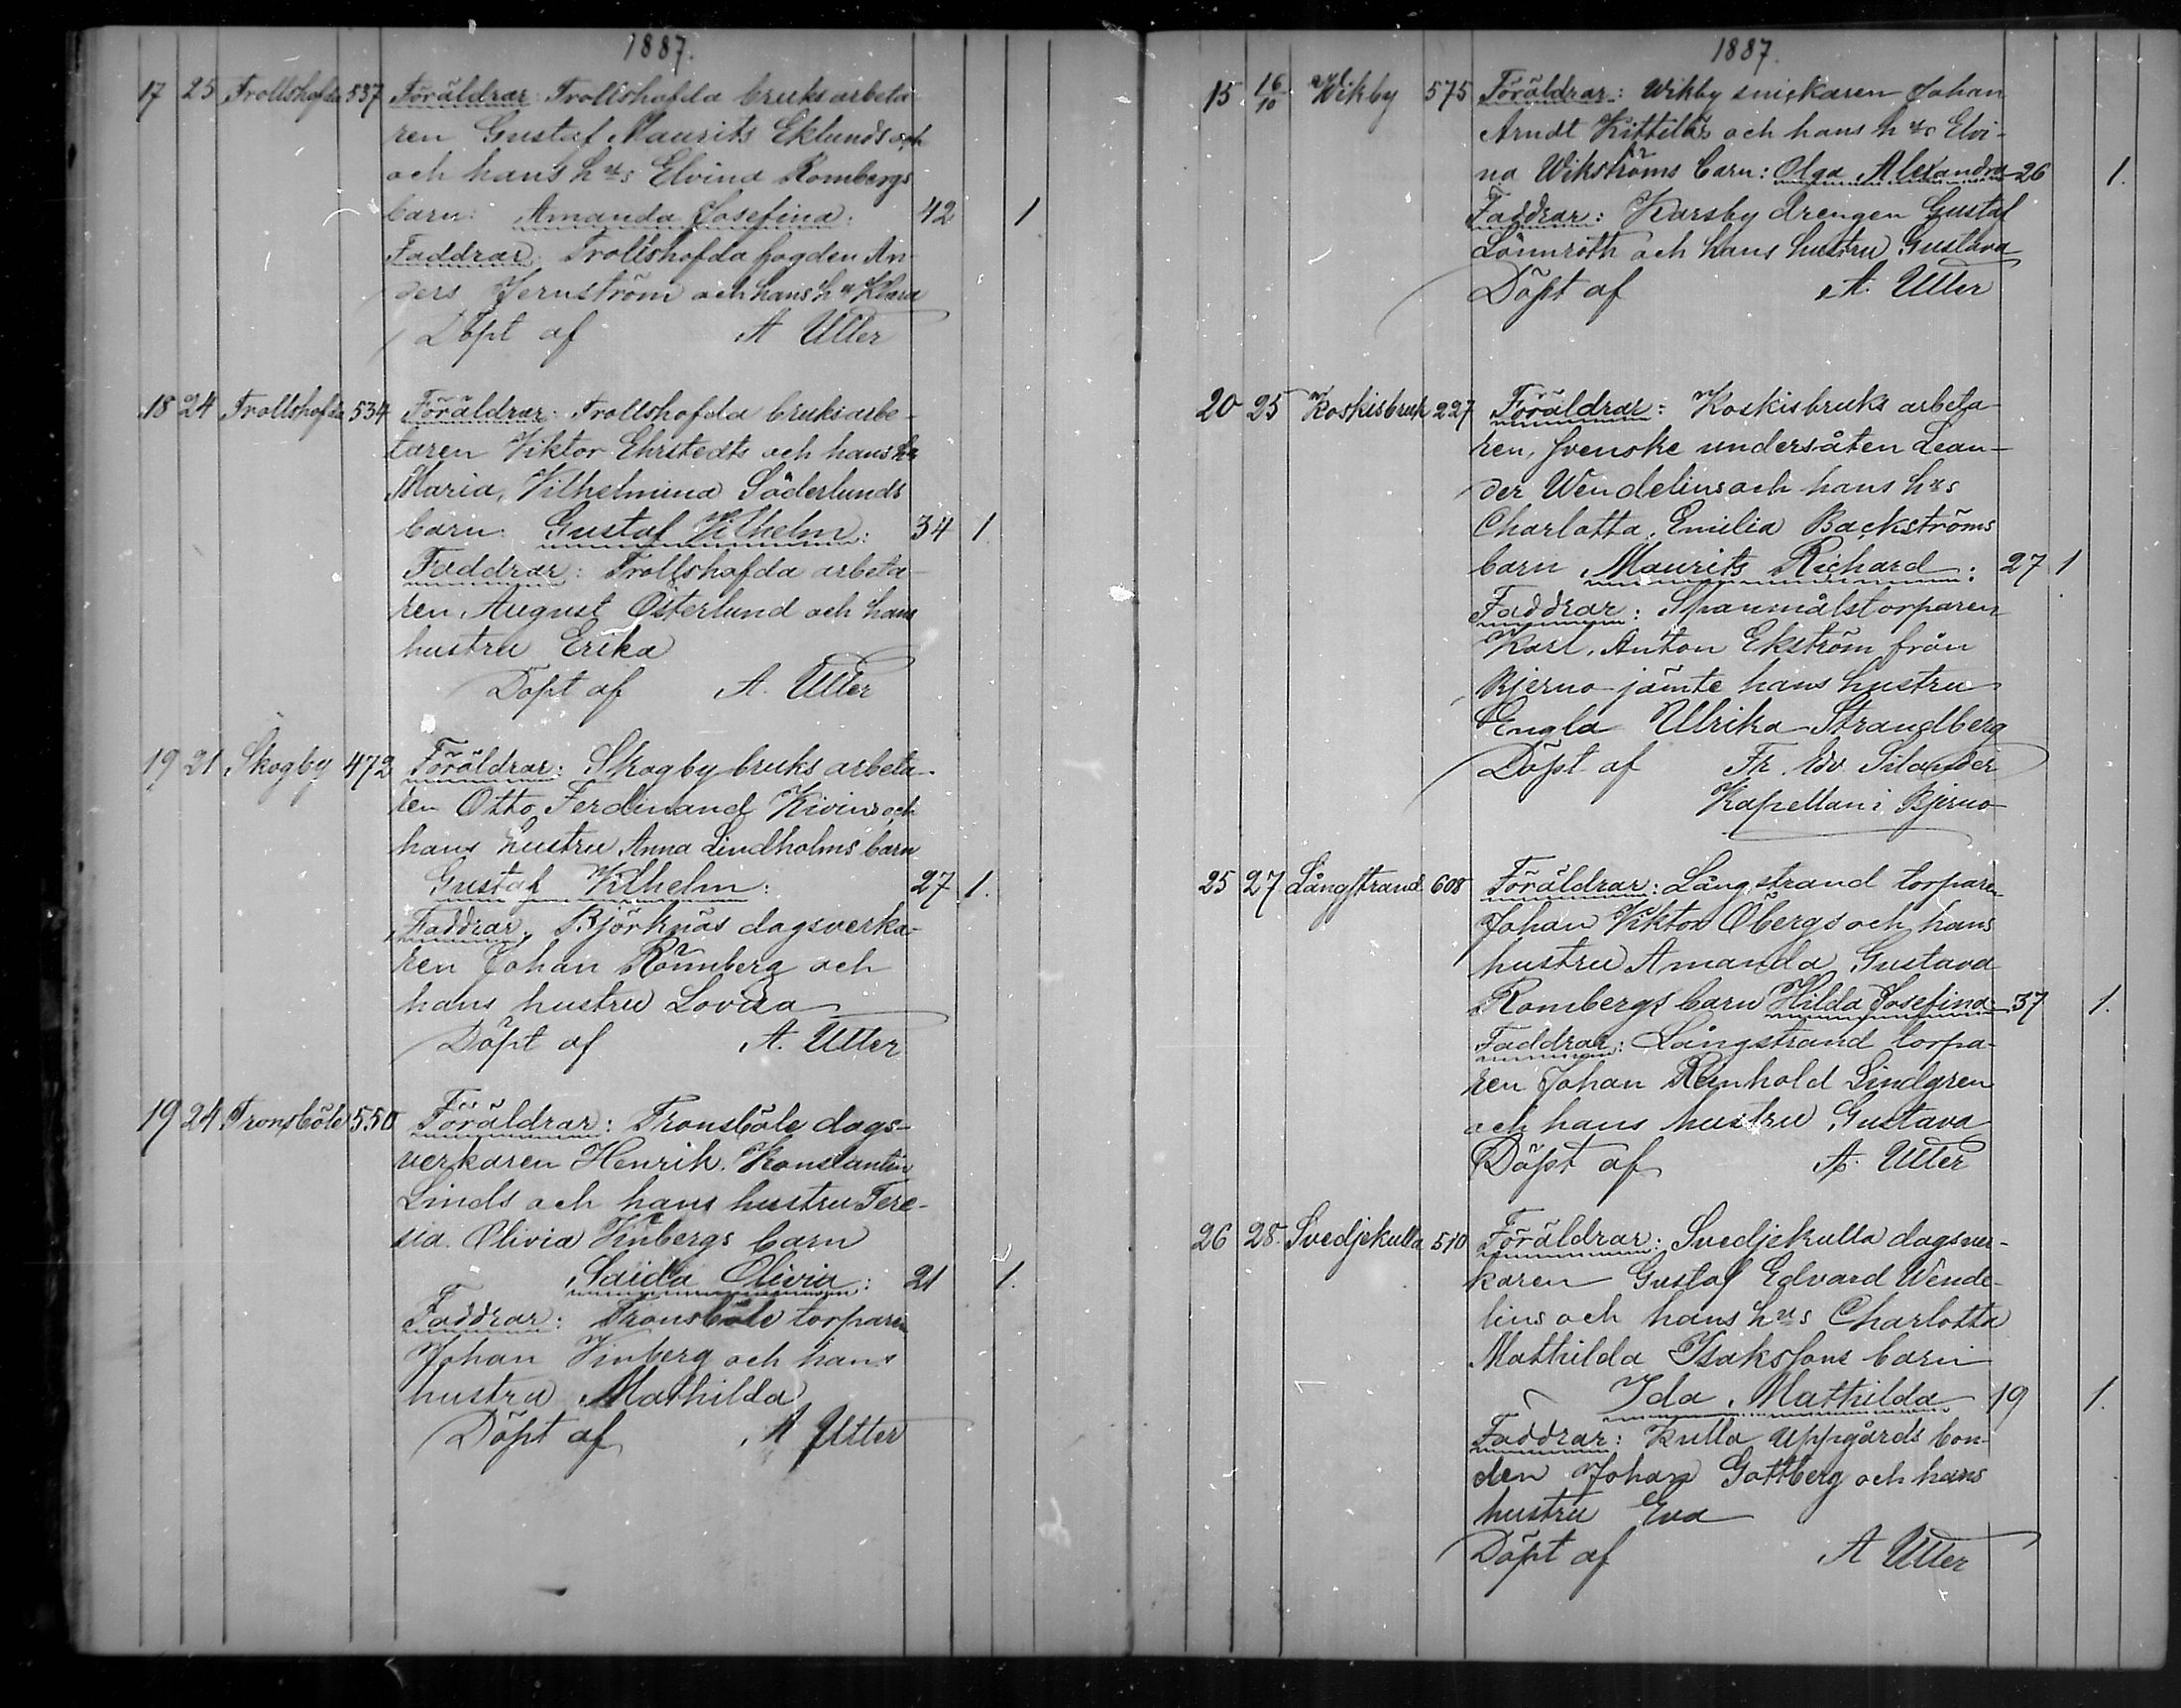 1887.
17 25 Trollshofda 537 Föräldrar: Trollshofda bruksarbeta-
ren Gustaf Maurits Eklunds och
och hans h us Elvina Rombergs
barn: Amanda Josefina: 42 1
Faddrar: Trollshofda fogden An-
ders Jernström och hans h u Klara
Döpt af A Utter
18 24 Trollshofda 534 Föräldrar: Trollshofda bruksarbe-
taren Viktor Ehrstedts och hans h s
Maria Vilhelmina Söderlunds
barn: Gustaf Vilhelm: 34 1
Faddrar: Trollshofda arbeta-
ren August Österlund och hans
hustru Erika
Döpt af A. Utter
19 21 Skogby 472 Föräldrar: Skogby bruks arbeta-
ren Otto Ferdinand Kivins och
hans hustru Anna Lindholms barn
Gustaf Vilhelm: 27 1.
Faddrar, Björknäs dagsverka-
ren Johan Rönnberg och
hans hustru Lovisa
Döpt af A. Utter
19 24 Fronsböle 550 Föräldrar: Fronsböle dags-
verkaren Henrik Konstantin
Linds och hans hustru Tere-
sia Olivia Vinbergs barn
Saida Olivia: 21 1.
Faddrar: Fronsböle torparen
Johan Vinberg och hans
hustru Mathilda
Döpt af A Utter
1887.
15 16/10 Wikby 575 Föräldrar: Wikby snickaren Johan
Arndt Kitteläs och hans h us Elvi-
na Wikströms barn: Olga Alexandra 26 1.
Faddrar: Karsby drengen Gustaf
Lönnroth och hans hustru Gustava
Döpt af A. Utter
20 25 Koskisbruk 227 Föräldrar: Koskisbruks arbeta-
ren, svenske undersåten Lean-
der Wendelins och hans h us
Charlotta Emilia Backströms
barn Maurits Richard: 27 1
Faddrar: Spanmålstorparen
Karl Anton Ekström från
Bjerno jämte hans hustru
Engla Ulrika Strandberg
Döpt af Fr. Edv. Silander
Kapellan i Bjerno
25 27 Långstrand 608 Föräldrar: Långstrand torparen
Johan Viktor Öbergs och hans
hustru Amanda Gustava
Rombergs barn Hilda Josefina: 37 1.
Faddrar: Långstrand torpa-
ren Johan Reinhold Lindgren
och hans hustru Gustava
Döpt af A. Utter
26 28. Svedjekulla 510 Föräldrar: Svedjekulla dagsver-
karen Gustaf Edvard Wende-
lins och hans h us Charlotta
Mathilda Isakssons barn
Ida Mathilda 19 1.
Faddrar: Kulla Uppgårds bon-
den Johan Gottberg och hans
hustru Eva
Döpt af A Utter